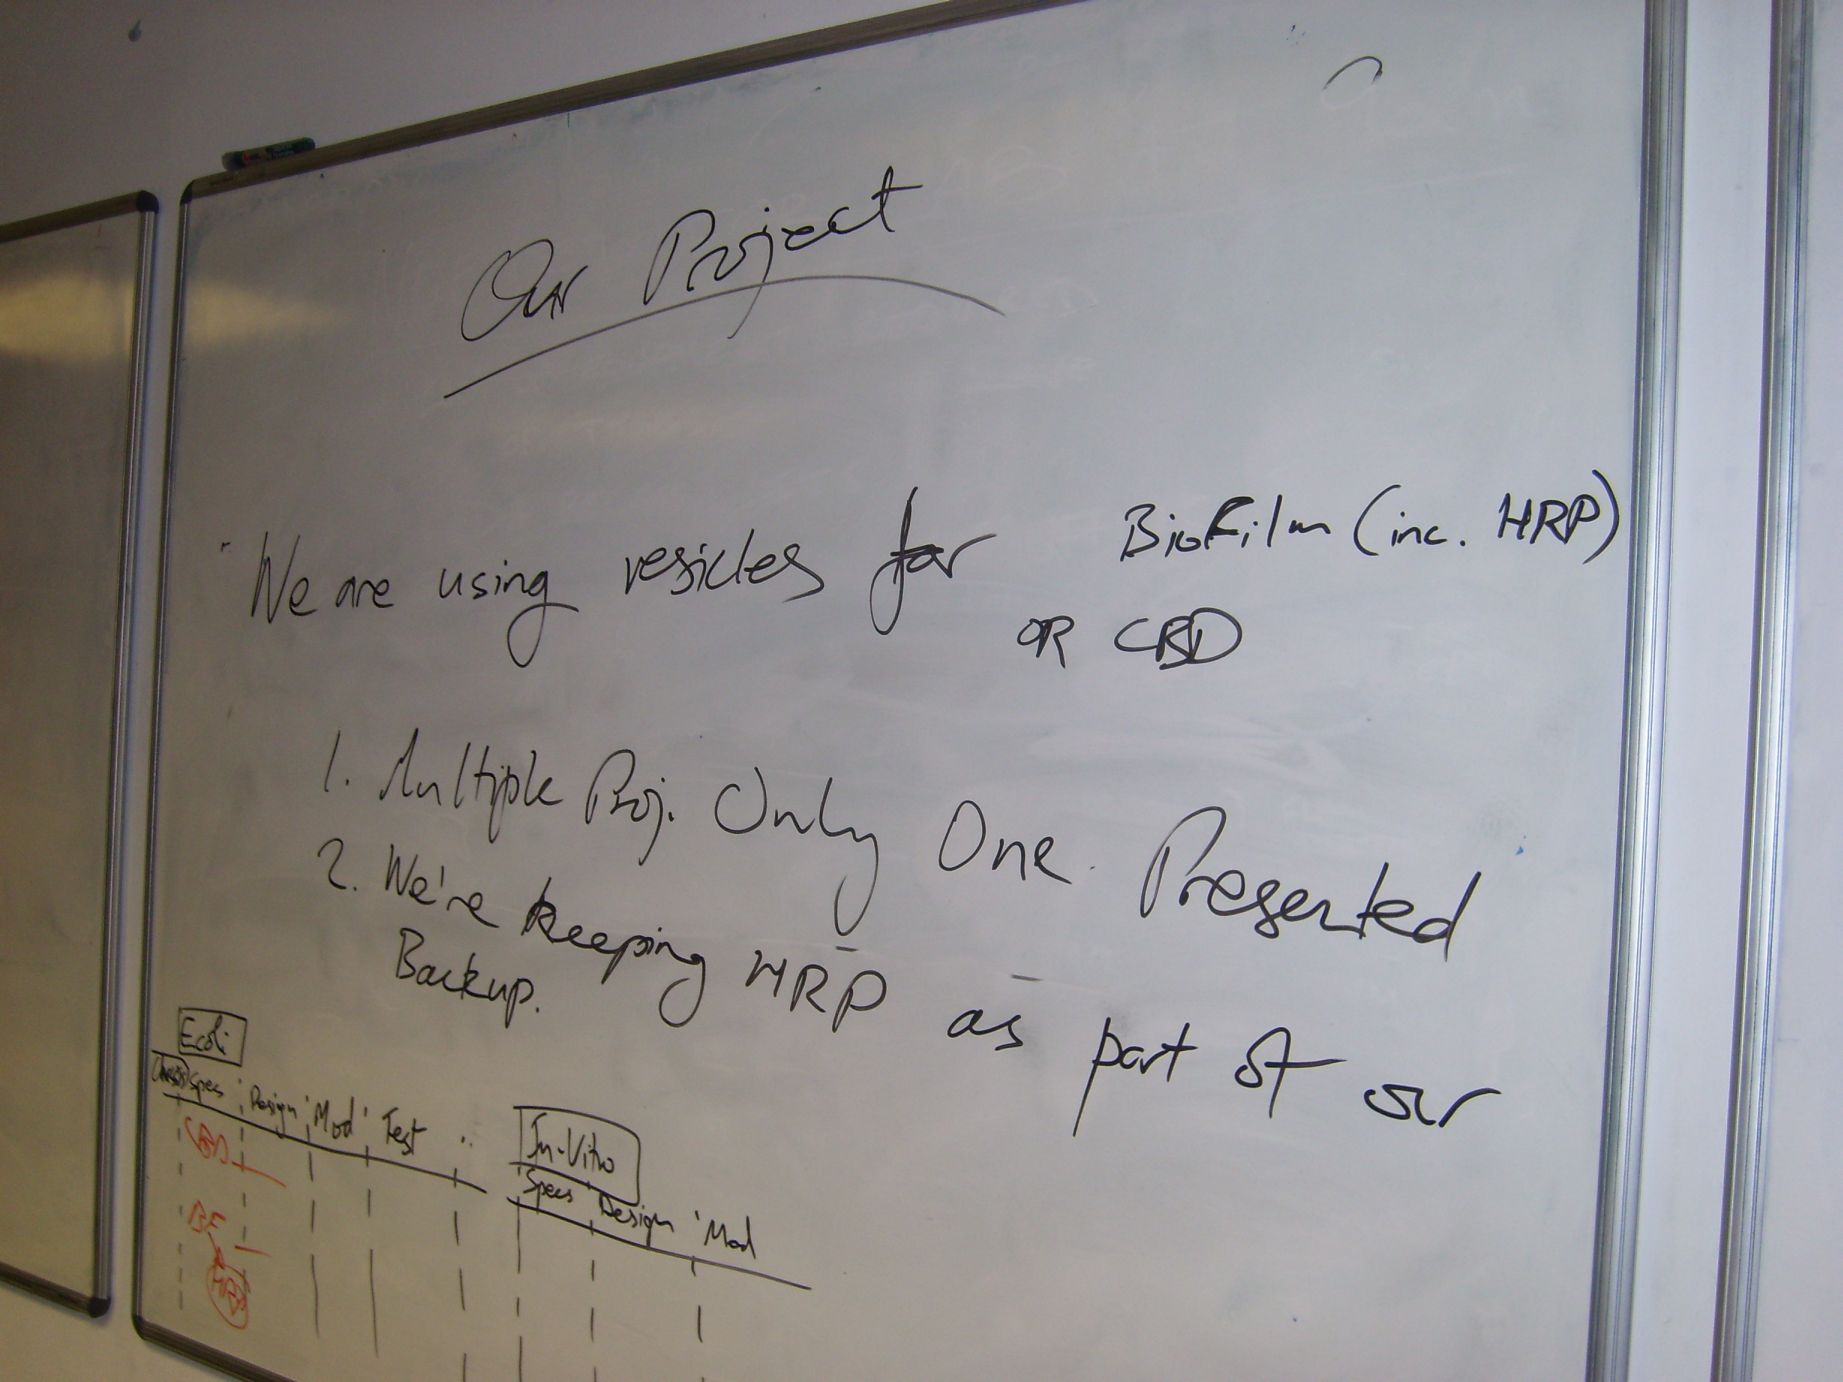 Our Project
We are using vesicles for BioFilm (inc. HRP)
OR CBD
1. Multiple Proj. Only One Presented
2. We're keeping HRP as part of our
Backup.
Ecoli
Chassis Specs Design Mod Test ..
CBD
BF
HRP
In-Vitro
Specs Design Mod